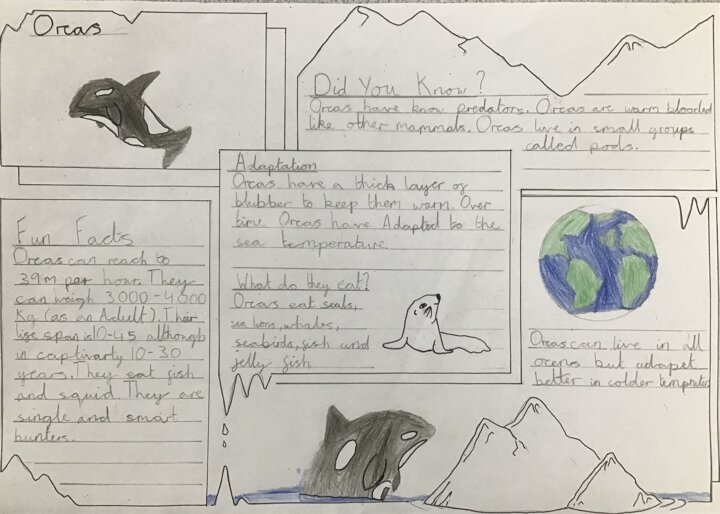 Orcas
Did You Know?
Orcas have know predators. Orcas are warm blooded
like other mammals. Orcas live in small groups
called pods.
Adaptation
Orcas have a thick layer of
blubber to keep them warm. Over
time Orcas have Adapted to the
sea temperature.
What do they eat?
Orcas eat seals,
sea lions, whales,
seabirds, fish and
jelly fish
Fun Facts
Orcas can reach to
39m per hour. They
can weigh 3000-4000
Kg (as an Adult). Their
life span is 10-45 although
in captivarty 10-30
years. They eat fish
and squid. They are
single and smart
hunters.
Orcas can live in all
ocens but adapet
better in colder tempratures